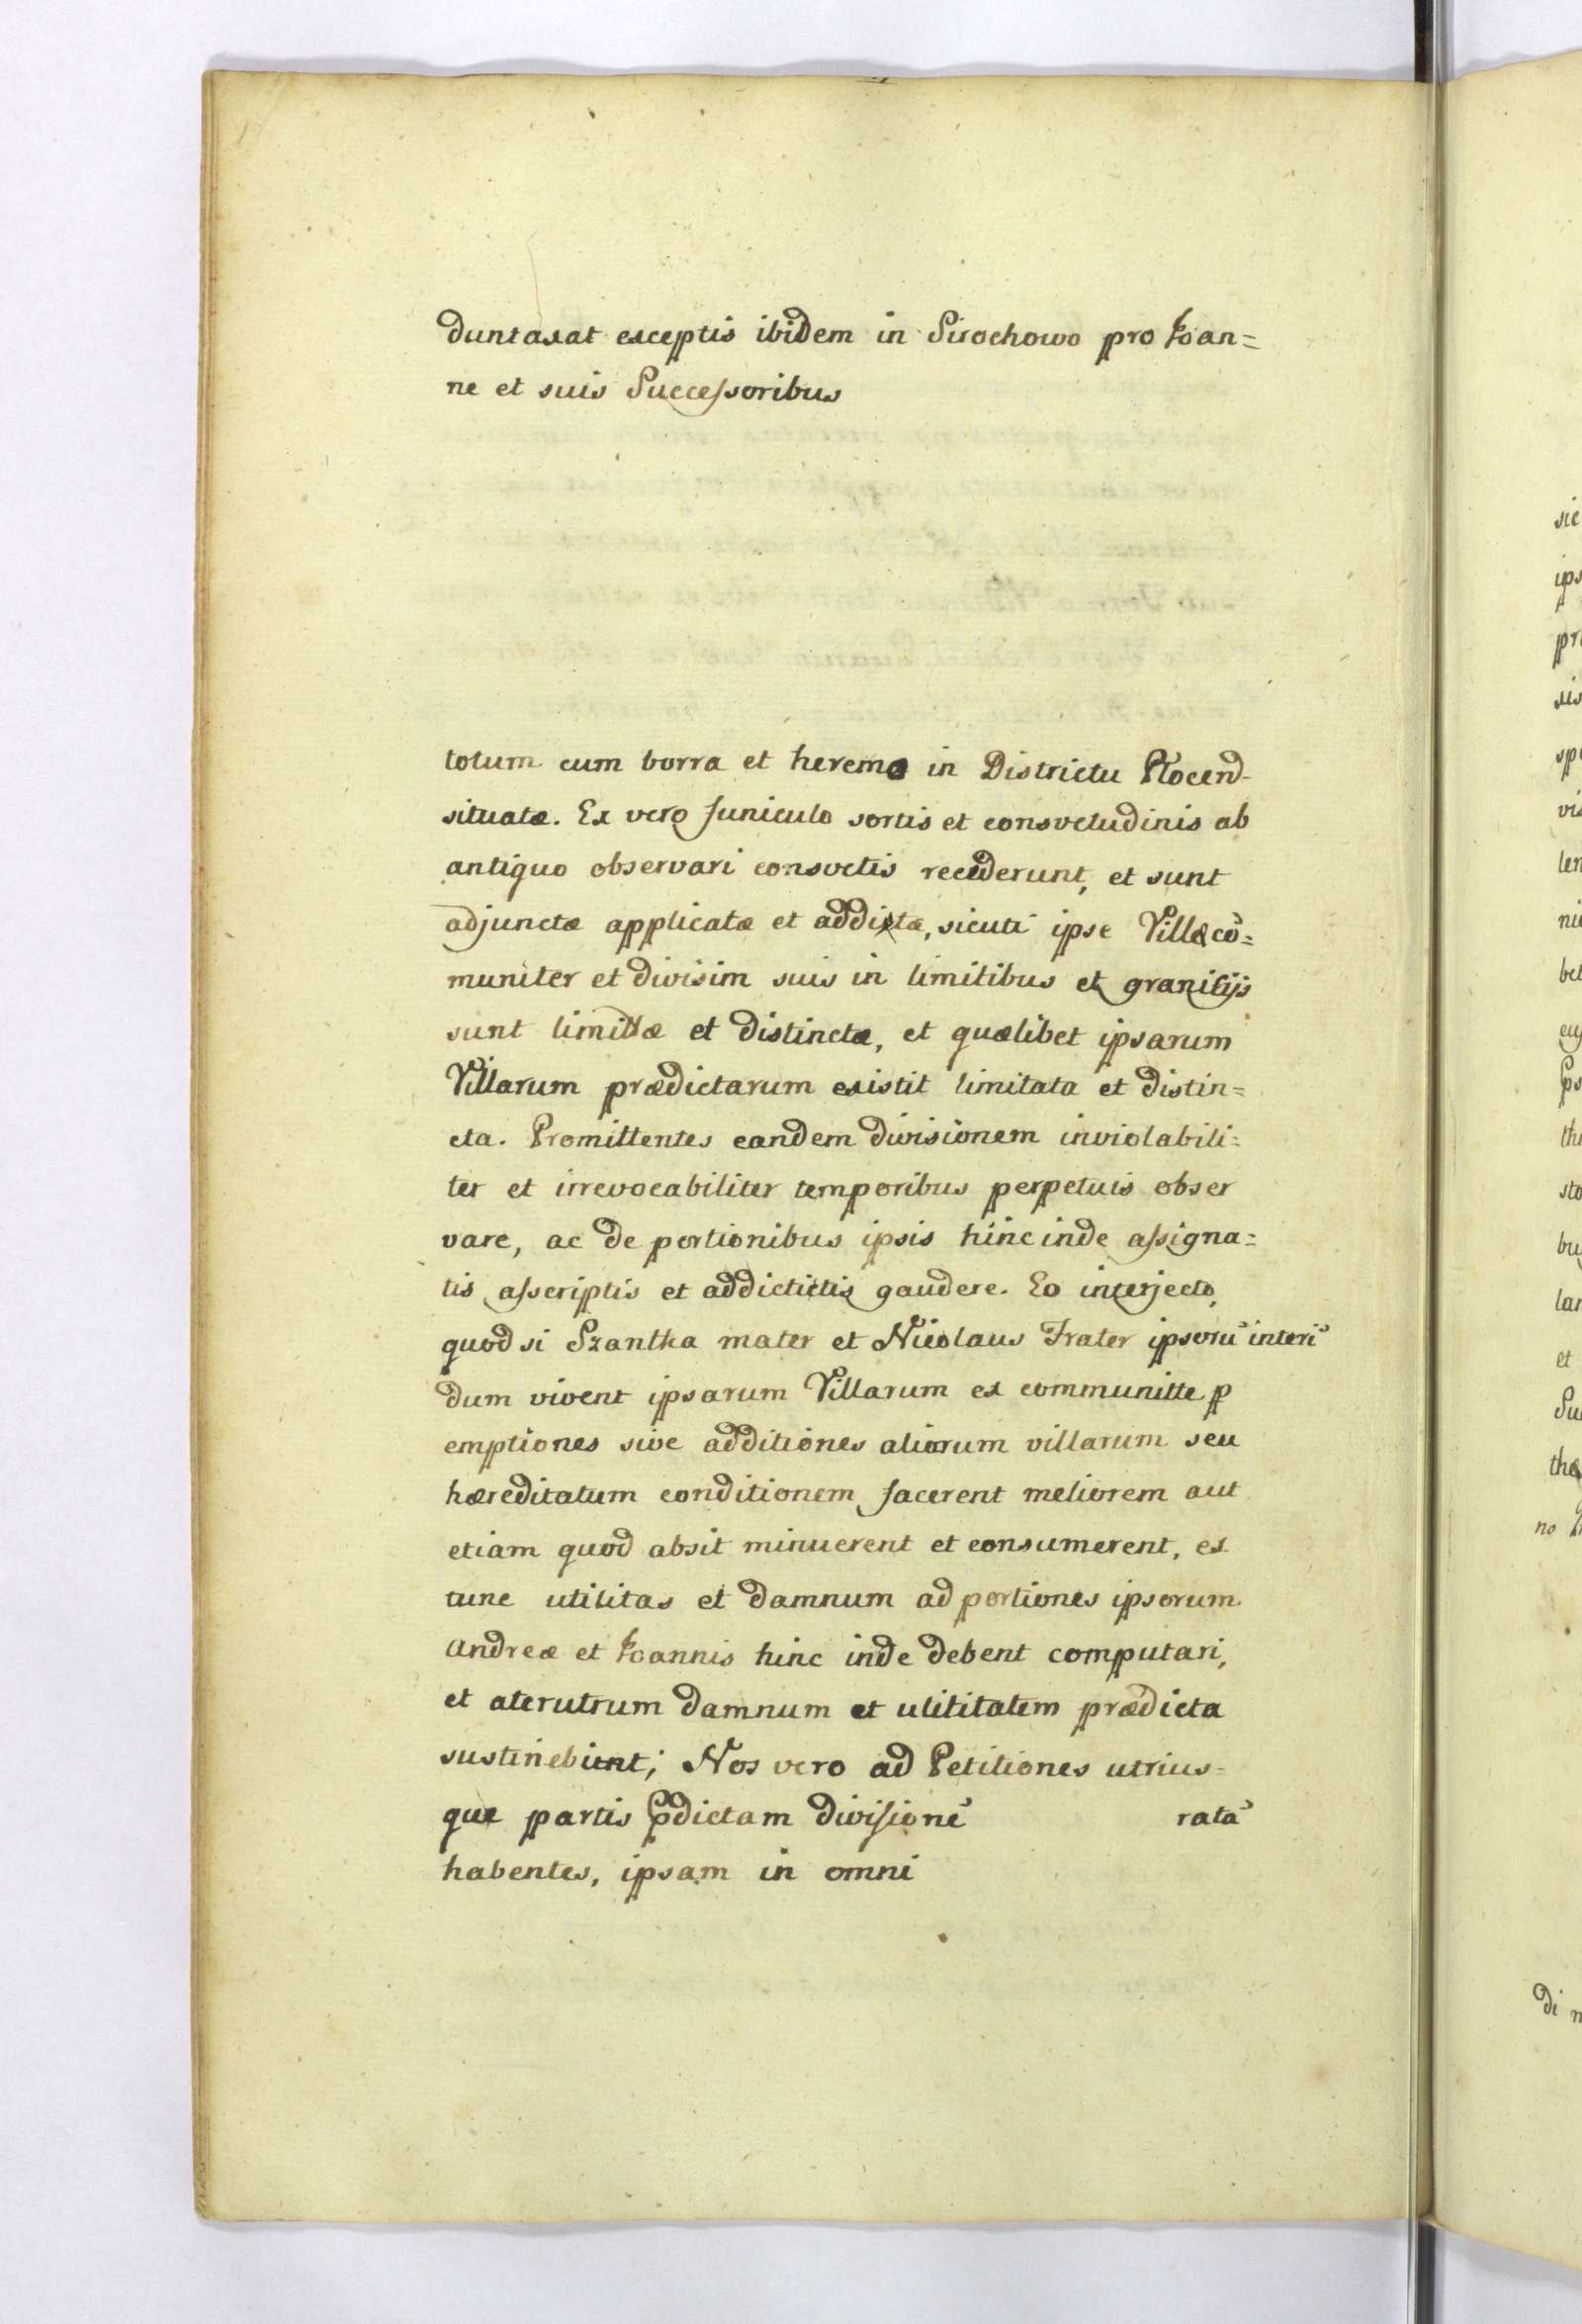 duntaxat exceptis ibidem in Sirochowo pro Joan=
ne et suis Successoribus
totum cum borra et heremo in Districtu Plocend-
situatæ. Ex vero funiculo sortis et consvetudinis ab
antiquo observari consvetis reciderunt, et sunt
adjunctæ applicatæ et addictæ, sicuti ipse Villæ cõ=
muniter et divisim suis in limitibus et granitijs
sunt limittæ et distinctæ, et quælibet ipsarum
Villarum prædictarum existit limitata et distin=
cta. Promittentes eandem divisionem inviolabili=
ter et irrevocabiliter temporibus perpetuis obser
vare, ac de portionibus ipsis hinc inde assigna=
tis asscriptis et addictictis gaudere. Eo interjecto,
quod si Szantka mater et Nicolaus Frater ipsorũ interĩ
dum vivent ipsarum Villarum ex communitte p
emptiones sive additiones aliorum villarum seu
hæreditatum conditionem facerent meliorem aut
etiam quod absit minuerent et consumerent, ex
tunc utilitas et damnum ad portiones ipsorum
Andreæ et Joannis hinc inde debent computari,
et aterutrum damnum et utilitatem prædicta
sustinebunt; Nos vero ad Petitiones utrius=
que partis pdictam divisionẽ ratã
habentes, ipsam in omni
sic
ips
pr
sis
sp
vis
len
ni
bet
euj
ps
th
sto
bu
lar
et
Su
the
no
di n